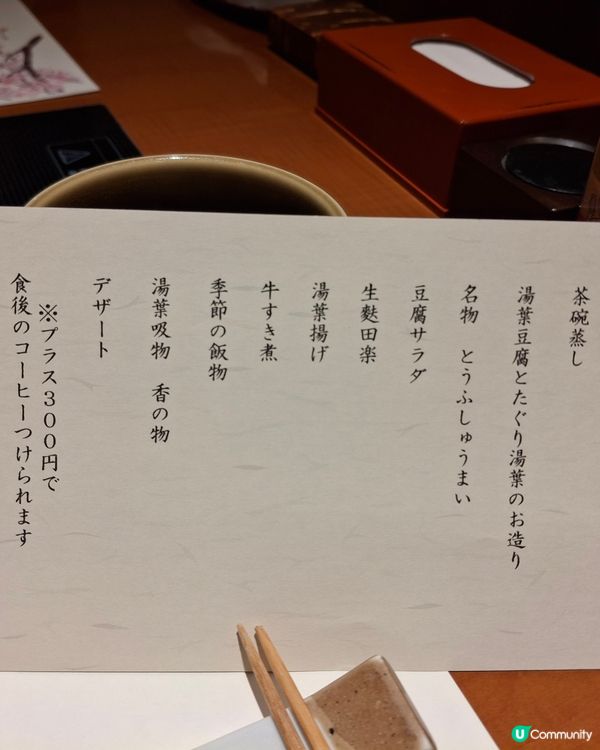 茶碗蒸し
湯葉豆腐とたぐり湯葉のお造り
名物　とうふしゅうまい
豆腐サラダ
生麩田楽
湯葉揚げ
牛すき煮
季節の飯物
湯葉吸物　香の物
デザート
※プラス３００円で
食後のコーヒーつけられます
U Community